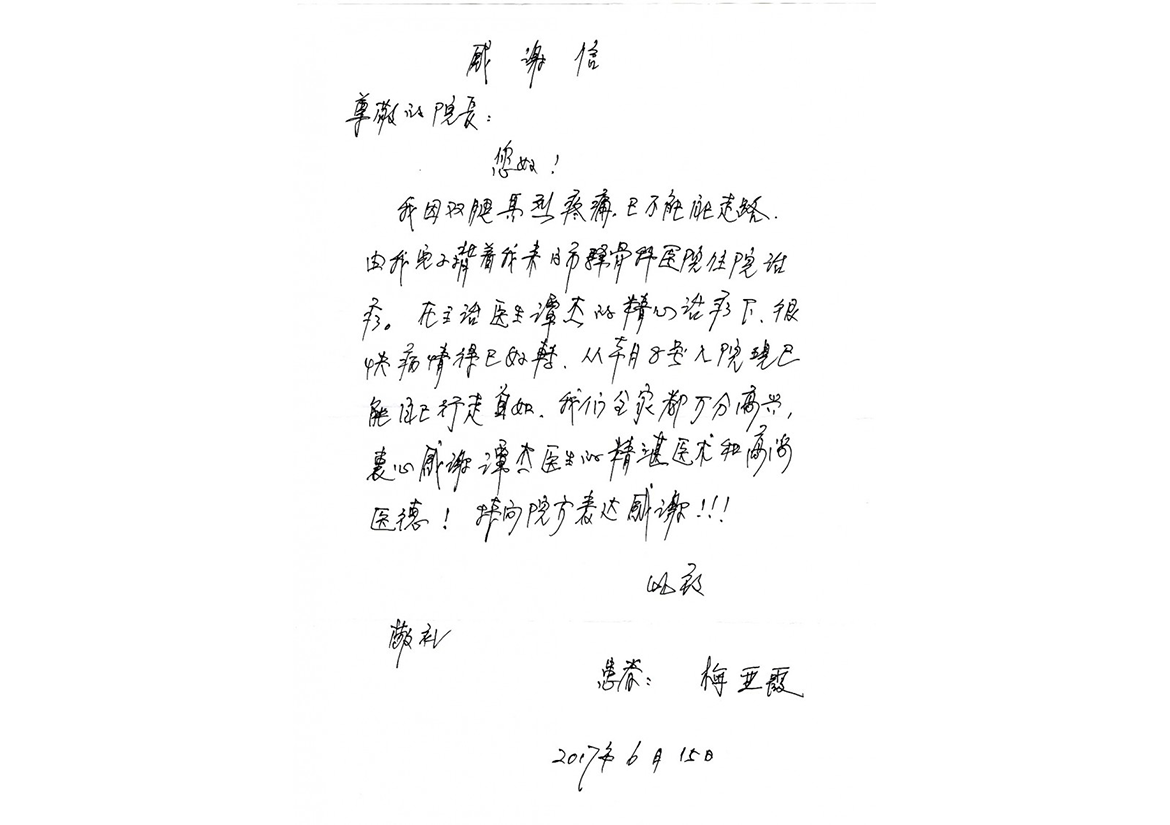 感谢信
尊敬的院长:
您好!
我因双腿剧烈疼痛,已不能走路.
由我儿子背着我来日市骨科医院住院治
疗。在主治医生谭杰的精心治疗下、很
快病情得已好转.从本月8号入院现已
能自已行走自如.我们全家都万分高兴,
衷心感谢谭杰医生的精湛医术和高尚
医德!并向院方表达感谢!!!
此致
敬礼
患者: 梅亚霞
2017年6月15日